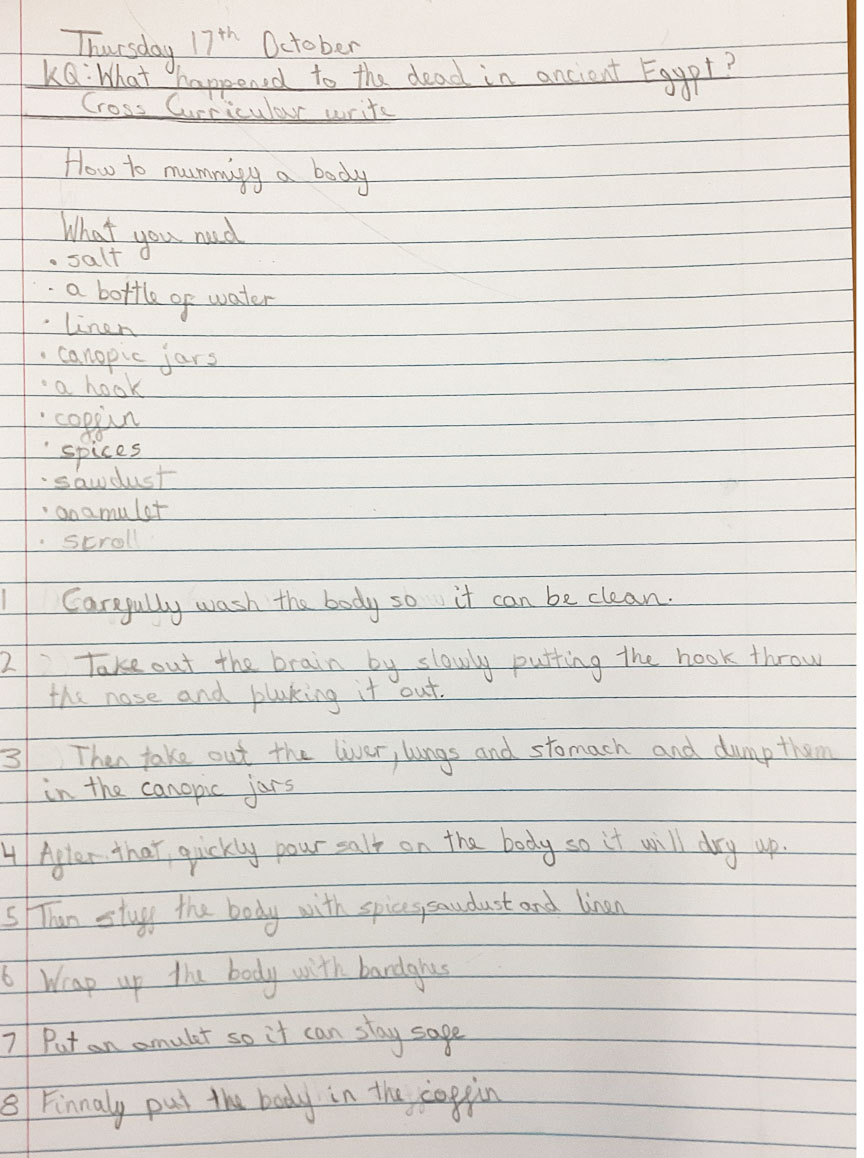 Thursday 17th October
KQ: What happened to the dead in ancient Egypt?
Cross Curricular write
How to mummify a body
What you need
• salt
• a bottle of water
• linen
• canopic jars
• a hook
• coffin
• spices
• sawdust
• an amulet
• scroll
1 Carefully wash the body so it can be clean.
2 Take out the brain by slowly putting the hook throw
the nose and pluking it out.
3 Then take out the liver, lungs and stomach and dump them
in the canopic jars
4 After that, quickly pour salt on the body so it will dry up.
5 Then stuff the body with spices, sawdust and linen
6 Wrap up the body with bandghes
7 Put an amulet so it can stay safe
8 Finnaly put the body in the coffin